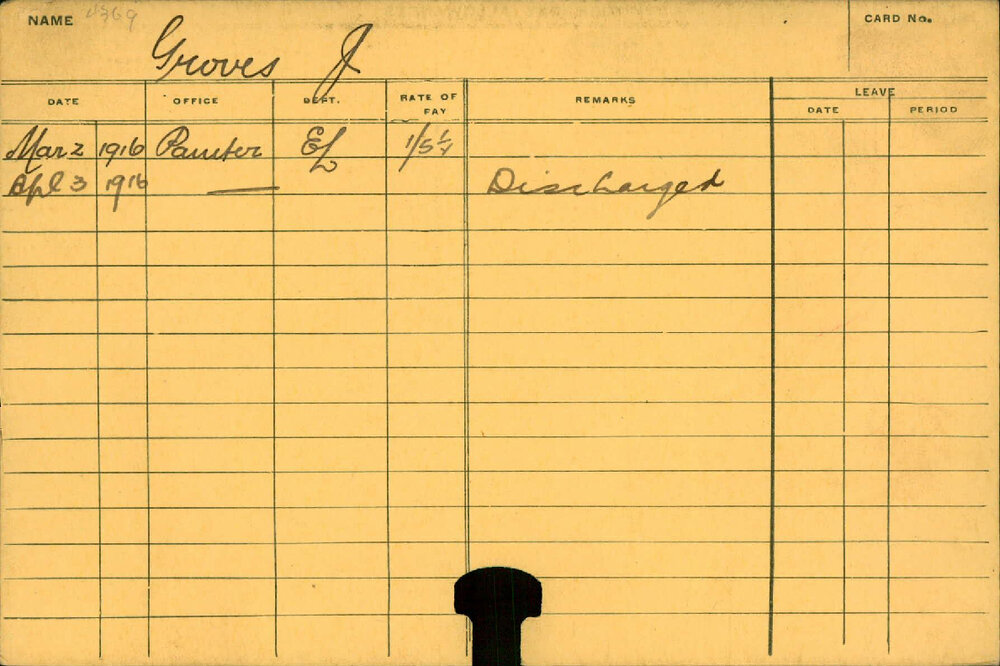 NAME
Groves J
CARD No.
DATE OFFICE DEPT. RATE OF PAY REMARKS LEAVE
DATE PERIOD
Mar 2 1916 Painter EL
Apl 3 1916 — Discharged